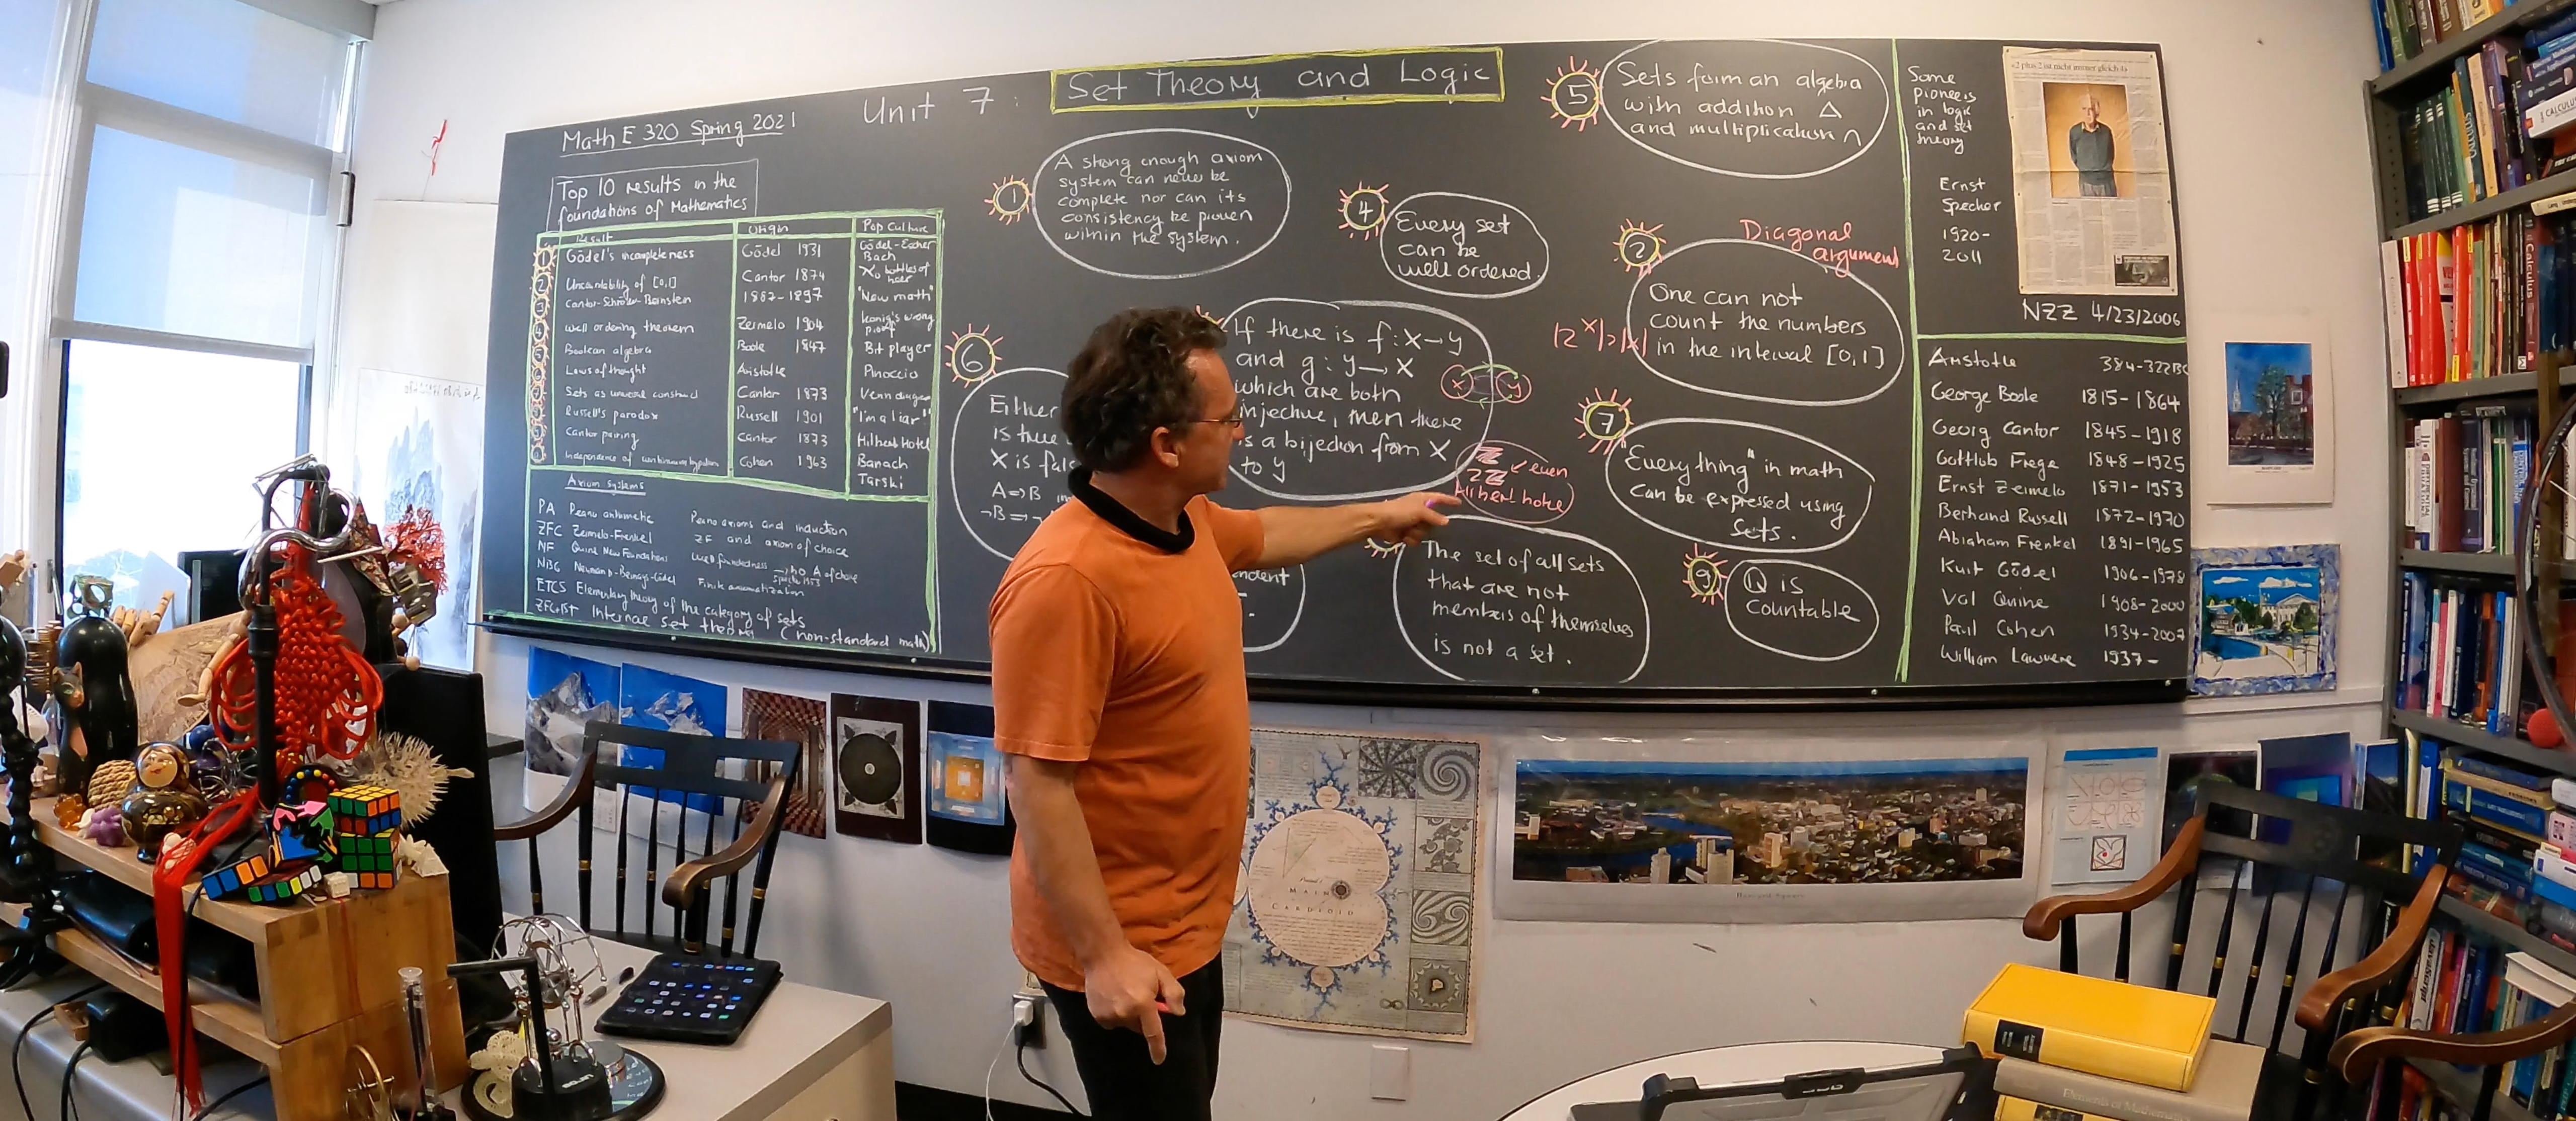 Math E 320 Spring 2021
Unit 7:
Set Theory and Logic
Top 10 results in the
foundations of Mathematics
Result Origin Pop Culture
1 Gödel's incompleteness Gödel 1931 Gödel-Escher
Bach
2 Uncountability of [0,1] Cantor 1874 ℵ₀ bottles of
beer
3 Cantor-Schröder-Bernstein 1887-1897 "New math"
4 well ordering theorem Zermelo 1904 Koenig's wrong
proof
5 Boolean algebra Boole 1847 Bit player
6 Laws of thought Aristotle Pinoccio
7 Sets as universal construct Cantor 1873 Venn diagram
Russell's paradox Russell 1901 "I'm a liar!"
Cantor pairing Cantor 1873 Hilbert Hotel
Independence of continuum hypothesis Cohen 1963 Banach
Tarski
Axiom systems
PA Peano arithmetic Peano axioms and induction
ZFC Zermelo-Frenkel ZF and axiom of choice
NF Quine New Foundations Well foundedness → no A of choice
Specker 1953
NBG Neumann-Bernays-Gödel Finite axiomatization
ETCS Elementary theory of the category of sets
ZFC+IST Internal set theory (non-standard math)
1
A strong enough axiom
system can never be
complete nor can its
consistency be proven
within the system.
4
Every set
can be
well ordered.
5
Sets form an algebra
with addition Δ
and multiplication ∩
6
Either
is true
X is fals
A⇒B
¬B⇒¬
If there is f: X→Y
and g: Y→X
which are both
injective, then there
is a bijection from X
to Y
X Y
ℤ
2ℤ ✓ even
Hilbert hotel
2
Diagonal
argument
|2^X|>|X|
One can not
count the numbers
in the interval [0,1]
7
"Everything" in math
can be expressed using
sets.
The set of all sets
that are not
members of themselves
is not a set.
9
ℚ is
countable
Some
pioneers
in logic
and set
theory
Ernst
Specker
1920-
2011
«2 plus 2 ist nicht immer gleich 4»
NZZ 4/23/2006
Aristotle 384-322BC
George Boole 1815-1864
Georg Cantor 1845-1918
Gottlob Frege 1848-1925
Ernst Zermelo 1871-1953
Berthand Russell 1872-1970
Abraham Frenkel 1891-1965
Kurt Gödel 1906-1978
Vol Quine 1908-2000
Paul Cohen 1934-2007
William Lawvere 1937-
MAIN
CARDIOID
Harvard Square
Elements of Mathematics
CALCULUS
Calculus